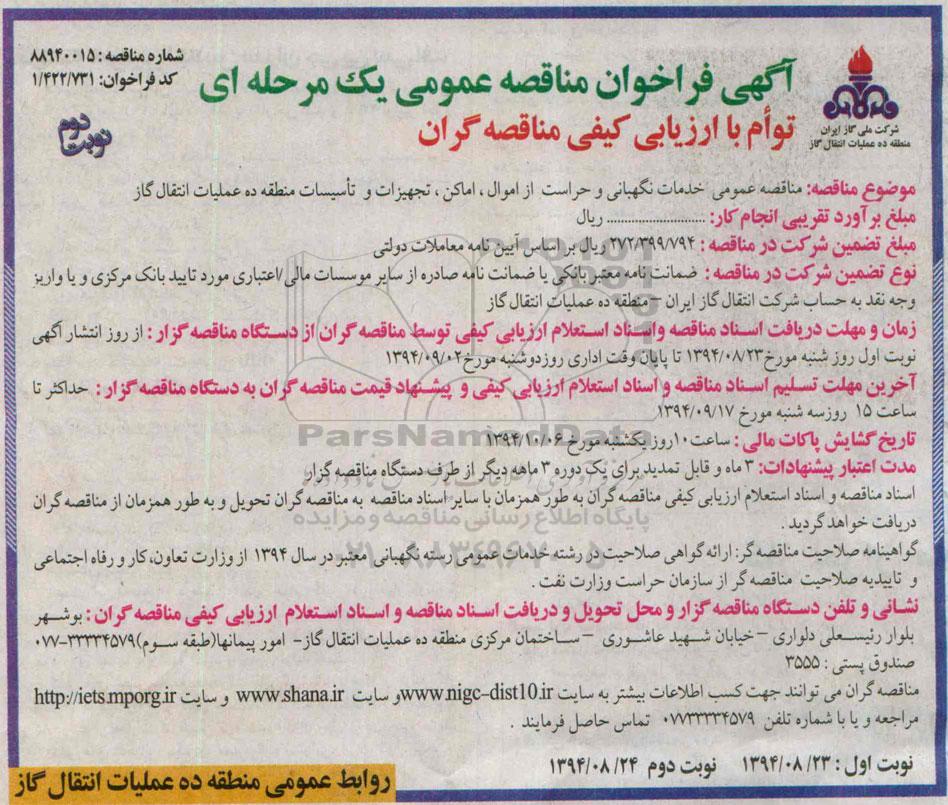 شماره مناقصه : ۸۸۹۴۰۰۱۵
کد فراخوان: ۱/۴۲۲/۷۳۱
نوبت دوم
آگهی فراخوان مناقصه عمومی یک مرحله ای
توأم با ارزیابی کیفی مناقصه گران
شرکت ملی گاز ایران
منطقه ده عملیات انتقال گاز
موضوع مناقصه: مناقصه عمومی خدمات نگهبانی و حراست از اموال ، اماکن ، تجهیزات و تأسیسات منطقه ده عملیات انتقال گاز
مبلغ برآورد تقریبی انجام کار: ............................ ریال
مبلغ تضمین شرکت در مناقصه : ۲۷۲/۳۹۹/۷۹۴ ریال بر اساس آیین نامه معاملات دولتی
نوع تضمین شرکت در مناقصه : ضمانت نامه معتبر بانکی یا ضمانت نامه صادره از سایر موسسات مالی/اعتباری مورد تایید بانک مرکزی و یا واریز
وجه نقد به حساب شرکت انتقال گاز ایران – منطقه ده عملیات انتقال گاز
زمان و مهلت دریافت اسناد مناقصه و اسناد استعلام ارزیابی کیفی توسط مناقصه گران از دستگاه مناقصه گزار : از روز انتشار آگهی
نوبت اول روز شنبه مورخ ۱۳۹۴/۰۸/۲۳ تا پایان وقت اداری روز دوشنبه مورخ ۱۳۹۴/۰۹/۰۲
آخرین مهلت تسلیم اسناد مناقصه و اسناد استعلام ارزیابی کیفی و پیشنهاد قیمت مناقصه گران به دستگاه مناقصه گزار : حداکثر تا
ساعت ۱۵ روز سه شنبه مورخ ۱۳۹۴/۰۹/۱۷
تاریخ گشایش پاکات مالی : ساعت ۱۰ روز یکشنبه مورخ ۱۳۹۴/۱۰/۰۶
مدت اعتبار پیشنهادات: ۳ ماه و قابل تمدید برای یک دوره ۳ ماهه دیگر از طرف دستگاه مناقصه گزار
اسناد مناقصه و اسناد استعلام ارزیابی کیفی مناقصه گران به طور همزمان با سایر اسناد مناقصه به مناقصه گران تحویل و به طور همزمان از مناقصه گران
دریافت خواهد گردید .
گواهینامه صلاحیت مناقصه گر: ارائه گواهی صلاحیت در رشته خدمات عمومی رسته نگهبانی معتبر در سال ۱۳۹۴ از وزارت تعاون، کار و رفاه اجتماعی
و تاییدیه صلاحیت مناقصه گر از سازمان حراست وزارت نفت .
نشانی و تلفن دستگاه مناقصه گزار و محل تحویل و دریافت اسناد مناقصه و اسناد استعلام ارزیابی کیفی مناقصه گران : بوشهر
بلوار رئیسعلی دلواری – خیابان شهید عاشوری – ساختمان مرکزی منطقه ده عملیات انتقال گاز- امور پیمانها(طبقه سوم) ۳۳۳۳۴۵۷۹-۰۷۷
صندوق پستی : ۳۵۵۵
مناقصه گران می توانند جهت کسب اطلاعات بیشتر به سایت www.nigc-dist10.ir و سایت www.shana.ir و سایت http://iets.mporg.ir
مراجعه و یا با شماره تلفن ۰۷۷۳۳۳۳۴۵۷۹ تماس حاصل فرمایند .
نوبت اول : ۱۳۹۴/۰۸/۲۳ نوبت دوم ۱۳۹۴/۰۸/۲۴
روابط عمومی منطقه ده عملیات انتقال گاز
ParsNamadData
پایگاه اطلاع رسانی مناقصه و مزایده
۰۲۱-۸۸۳۴۹۶۷۰-۵